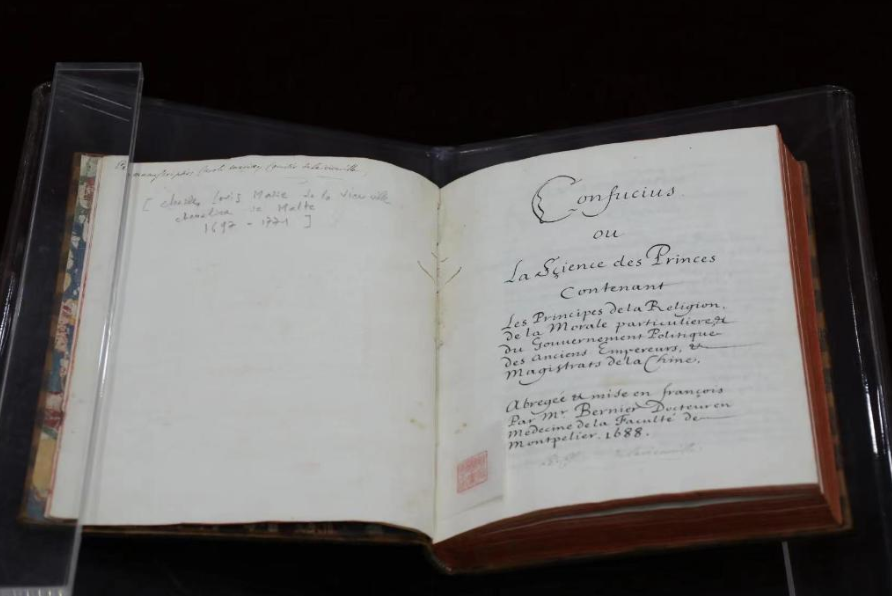 Comte
[ Charles Louis Marie de la Vieuville
de Malte
1697 - 1771 ]
Confucius.
ou
La Sçience des Princes
Contenant
Les Principes de la Religion,
de la Morale particuliere, &
du Gouvernement Politique
des Anciens Empereurs, &
Magistrats de la Chine.
Abregée & mise en françois
Par Mr. Bernier Docteur en
Medecine de la Faculté de
Montpelier. 1688.